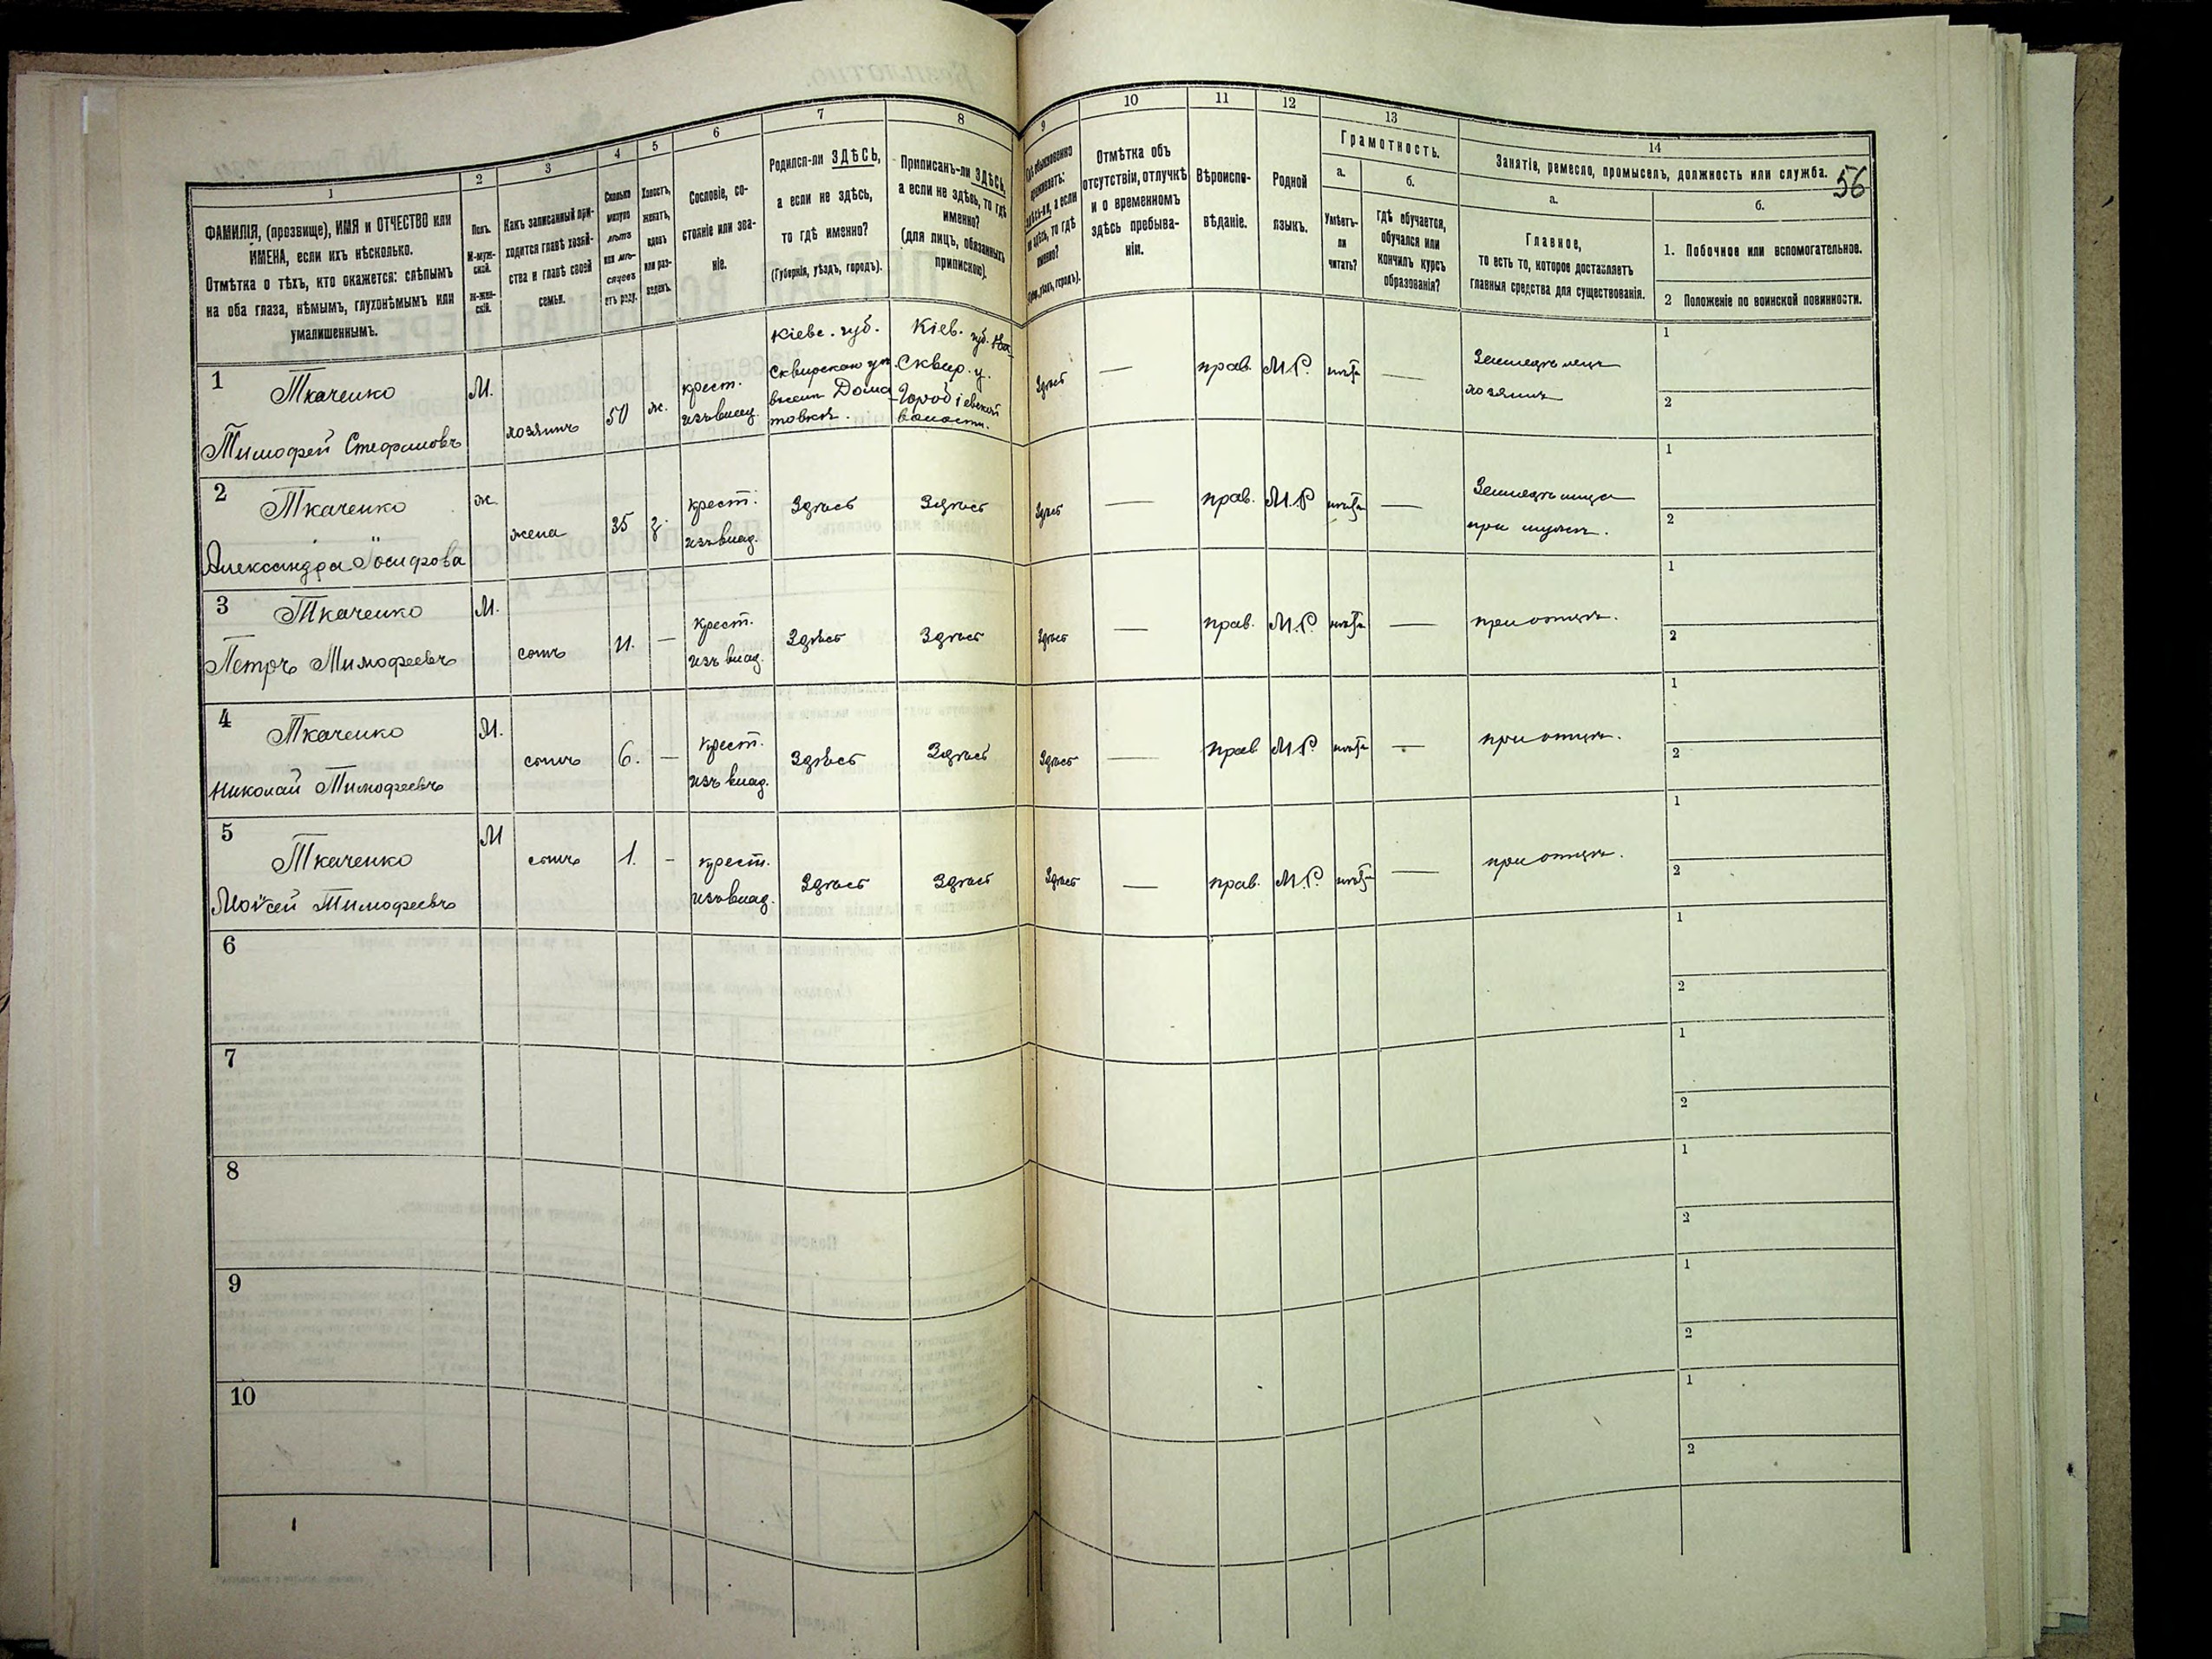 56
1 2 3 4 5 6 7 8 9 10 11 12 13 14
ФАМИЛІЯ, (прозвище), ИМЯ и ОТЧЕСТВО или
ИМЕНА, если ихъ нѣсколько.
Отмѣтка о тѣхъ, кто окажется: слѣпымъ
на оба глаза, нѣмымъ, глухонѣмымъ или
умалишеннымъ.
Полъ.
М-муж-
ской.
ж-жен-
скій.
Какъ записанный при-
ходится главѣ хозяй-
ства и главѣ своей
семьи.
Сколько
минуло
лѣтъ
или мѣ-
сяцевъ
отъ роду.
Холостъ,
женатъ,
вдовъ
или раз-
веденъ.
Сословіе, со-
стояніе или зва-
ніе.
Родился-ли ЗДѢСЬ,
а если не здѣсь,
то гдѣ именно?
(Губернія, уѣздъ, городъ).
Приписанъ-ли ЗДѢСЬ,
а если не здѣсь, то гдѣ
именно?
(для лицъ, обязанныхъ
припискою).
Гдѣ обыкновенно
проживаетъ:
здѣсь-ли, а если
не здѣсь, то гдѣ
именно?
(Губ., уѣздъ, городъ).
Отмѣтка объ
отсутствіи, отлучкѣ
и о временномъ
здѣсь пребыва-
ніи.
Вѣроиспо-
вѣданіе.
Родной
языкъ.
Грамотность.
а.
Умѣетъ-
ли
читать?
б.
Гдѣ обучается,
обучался или
кончилъ курсъ
образованія?
Занятія, ремесло, промыселъ, должность или служба.
а.
Главное,
то есть то, которое доставляетъ
главныя средства для существованія.
б.
1. Побочное или вспомогательное.
2 Положеніе по воинской повинности.
1 Ткаченко
Тимофей Стефановъ
М.
хозяинъ
50
ж.
крест.
изъ влад.
Кіевс. губ.
Сквирскаго уѣз.
Дома
товкѣ.
Кіев. губ.
Сквир. у.
Городіевской
волости.
Здѣсь
—
прав.
М.Р.
нѣтъ
—
Земледѣлецъ
хозяинъ
1
2
2 Ткаченко
Александра Іосифова
ж.
жена
35
з.
крест.
изъ влад.
Здѣсь
Здѣсь
Здѣсь
—
прав.
М.Р.
нѣтъ
—
Земледѣлица
при мужѣ.
1
2
3 Ткаченко
Петръ Тимофеевъ
М.
сынъ
11.
—
крест.
изъ влад.
Здѣсь
Здѣсь
Здѣсь
—
прав.
М.Р.
нѣтъ
—
при отцѣ.
1
2
4 Ткаченко
Николай Тимофеевъ
М.
сынъ
6.
—
крест.
изъ влад.
Здѣсь
Здѣсь
Здѣсь
—
прав
М.Р.
нѣтъ
—
при отцѣ.
1
2
5 Ткаченко
Моѵсей Тимофеевъ
М
сынъ
1.
-
крест.
изъ влад.
Здѣсь
Здѣсь
Здѣсь
—
прав.
М.Р.
нѣтъ
—
при отцѣ.
1
2
6
1
2
7
1
2
8
1
2
9
1
2
10
1
2